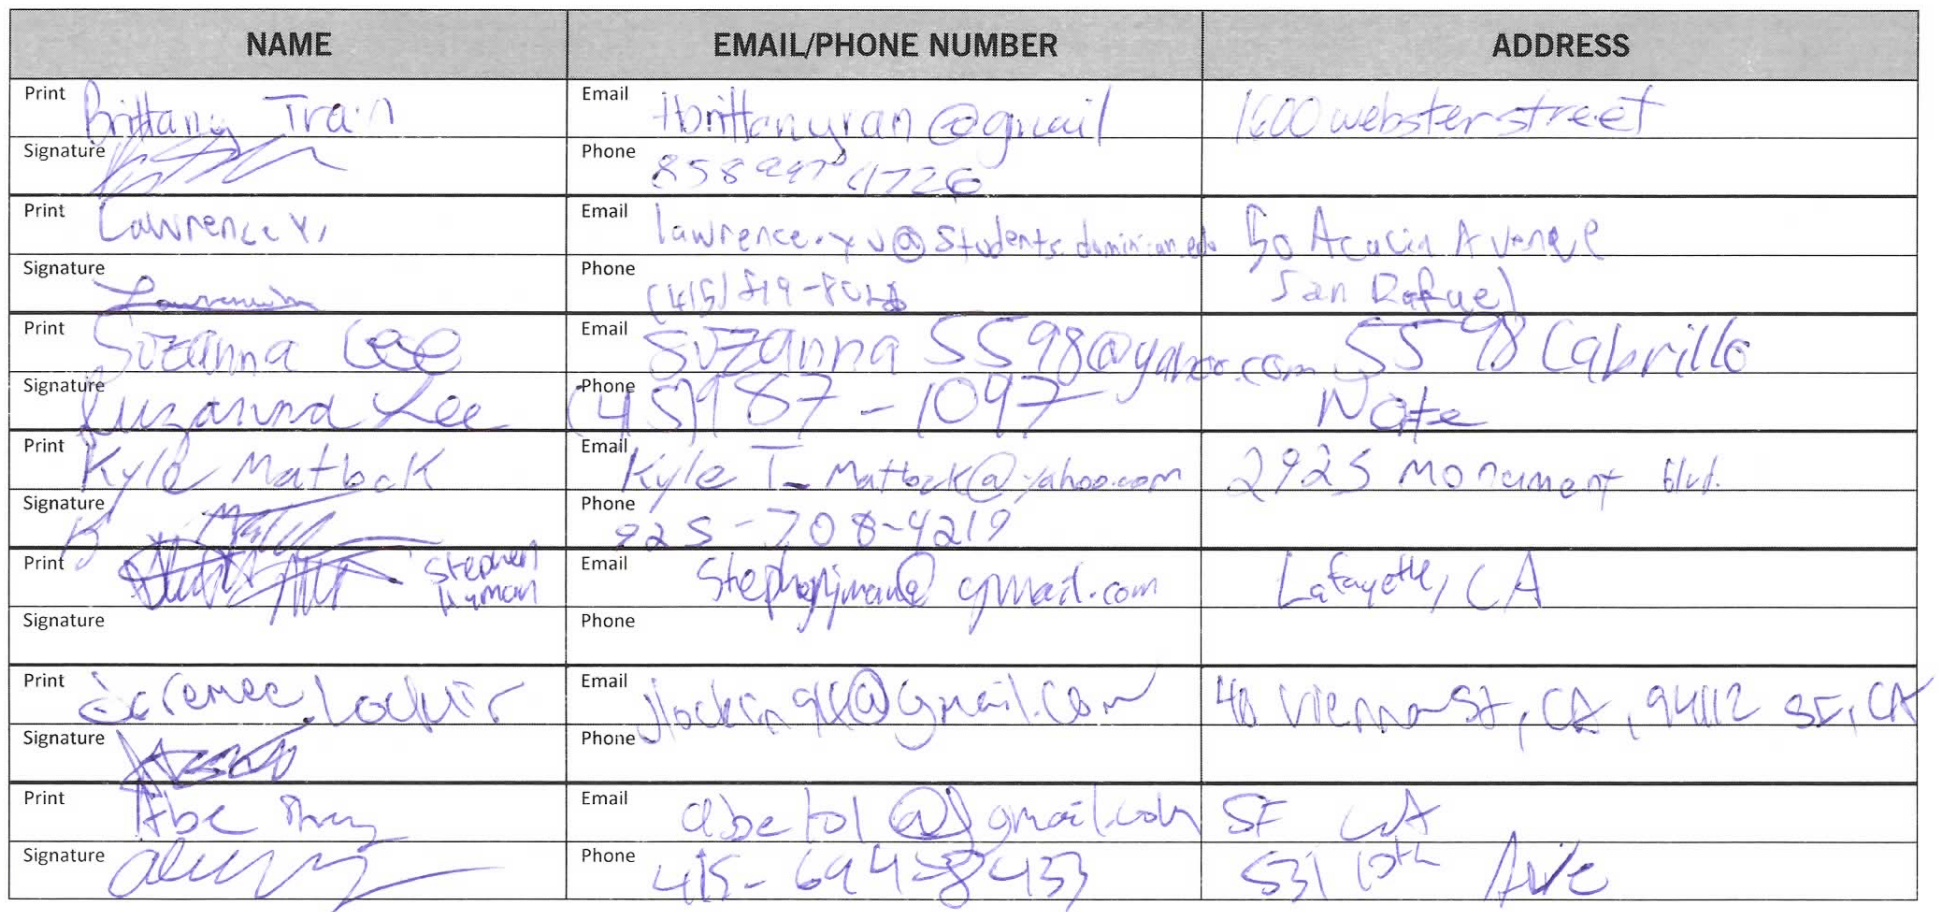 NAME EMAIL/PHONE NUMBER ADDRESS
Print Brittany Train Email tbrittanyran@gmail 1600 webster street
Signature Phone 858 4726
Print Lawrence Y. Email lawrence.yu@students.dominican.edu 50 Acacia Avenue
Signature Phone (415) 819-8028 San Rafael
Print Suzanna Lee Email Suzanna5598@yahoo.com 5598 Cabrillo
Signature Suzanna Lee Phone (415)987-1097 Note
Print Kyle Matback Email Kyle T_Matback@yahoo.com 2925 Monument blvd.
Signature Phone 925-708-4219
Print Stephen Hyman Email gmail.com Lafayette, CA
Signature Phone
Print Email @gmail.com Vienna St, CA, 94112 SF, CA
Signature Phone
Print Abe Email abe tol@gmail.com SF CA
Signature Phone 415-694-8433 531 10th Ave